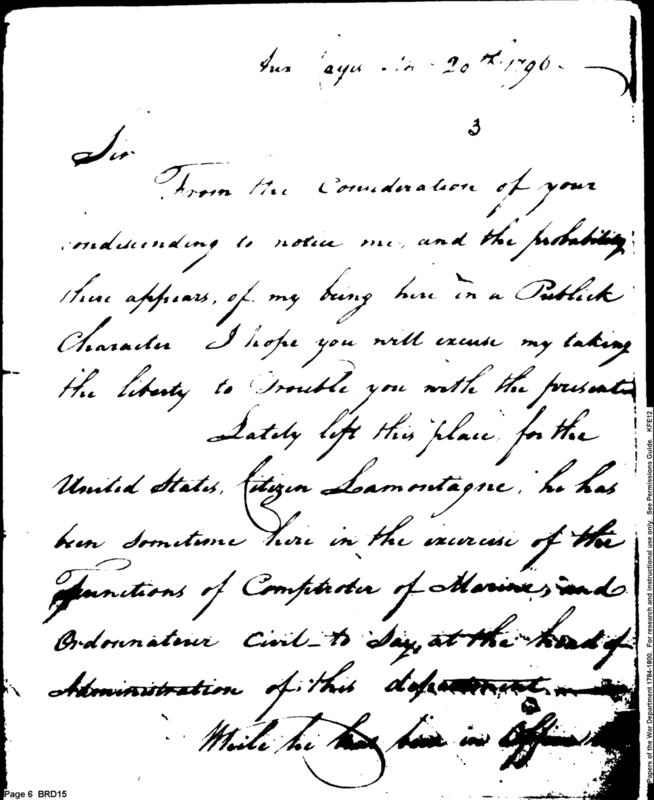 Aux Cayes Nov 20th 1796
3
Sir
From the Consideration of your
condescending to notice me, and the probability
there appears, of my being here in a Publick
Character I hope you will excuse my taking
the liberty to Trouble you with the present
Lately left this place, for the
United States, Citizen Lamontagne, he has
been sometime here in the exercise of the
Functions of Comptroler of Marine, and
Ordonnateur Civil - to Say, at the head of
Administration of this department
While he has been in Office
Page 6 BRD15
Papers of the War Department 1784-1800. For research and instructional use only. See Permissions Guide. KFE12